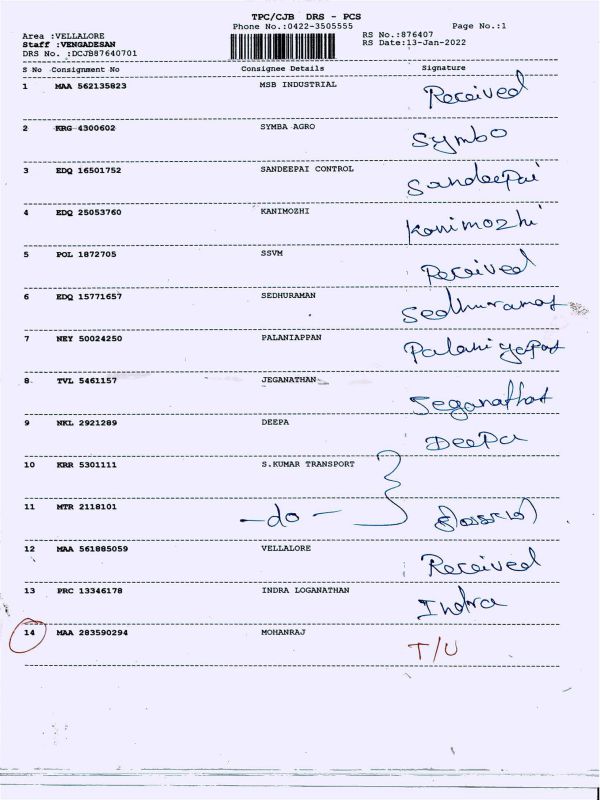 TPC/CJB DRS - PCS
Phone No.:0422-3505555 Page No.:1
Area :VELLALORE RS No.:876407
Staff :VENGADESAN RS Date:13-Jan-2022
DRS No. :DCJB87640701
S No Consignment No Consignee Details Signature
1 MAA 562135823 MSB INDUSTRIAL Received
2 KRG 4300602 SYMBA AGRO Symbo
3 EDQ 16501752 SANDEEPAI CONTROL Sandeepai
4 EDQ 25053760 KANIMOZHI Kanimozhi
5 POL 1872705 SSVM Received
6 EDQ 15771657 SEDHURAMAN
7 NEY 50024250 PALANIAPPAN
8 TVL 5461157 JEGANATHAN
9 NKL 2921289 DEEPA DeePa
10 KRR 5301111 S.KUMAR TRANSPORT
11 MTR 2118101 -do-
12 MAA 561885059 VELLALORE Received
13 PRC 13346178 INDRA LOGANATHAN Indra
14 MAA 283590294 MOHANRAJ T/U